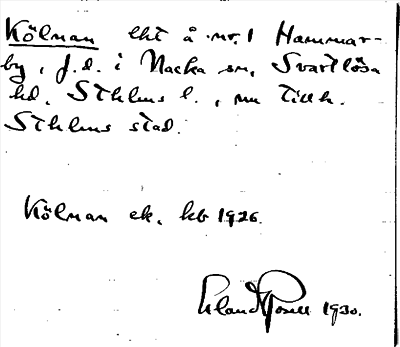 Kölnan lht å nr. 1 Hammar-
by, f.d. i Nacka sn, Svartlösa
hd, Sthlms l., nu tillh.
Sthlms stad.
Kölnan ek. kb 1926.
Erland Rosell 1930.